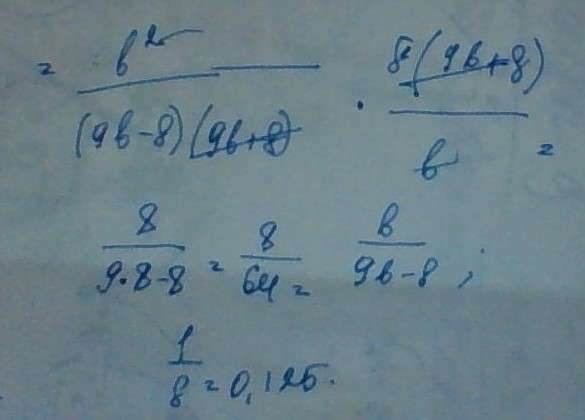 = b² / (9b-8)(9b+8) · (9b+8) / b =
8 / 9·8-8 = 8 / 64 = b / 9b-8 ;
1 / 8 = 0,125.